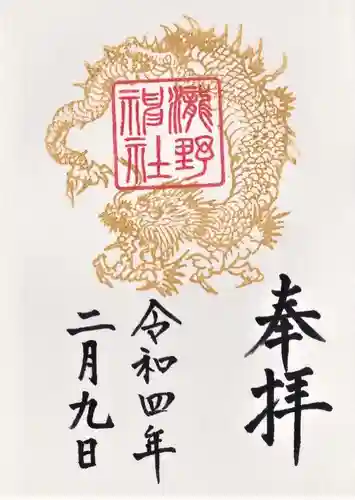 奉拝
瀧野
神社
令和四年
二月九日